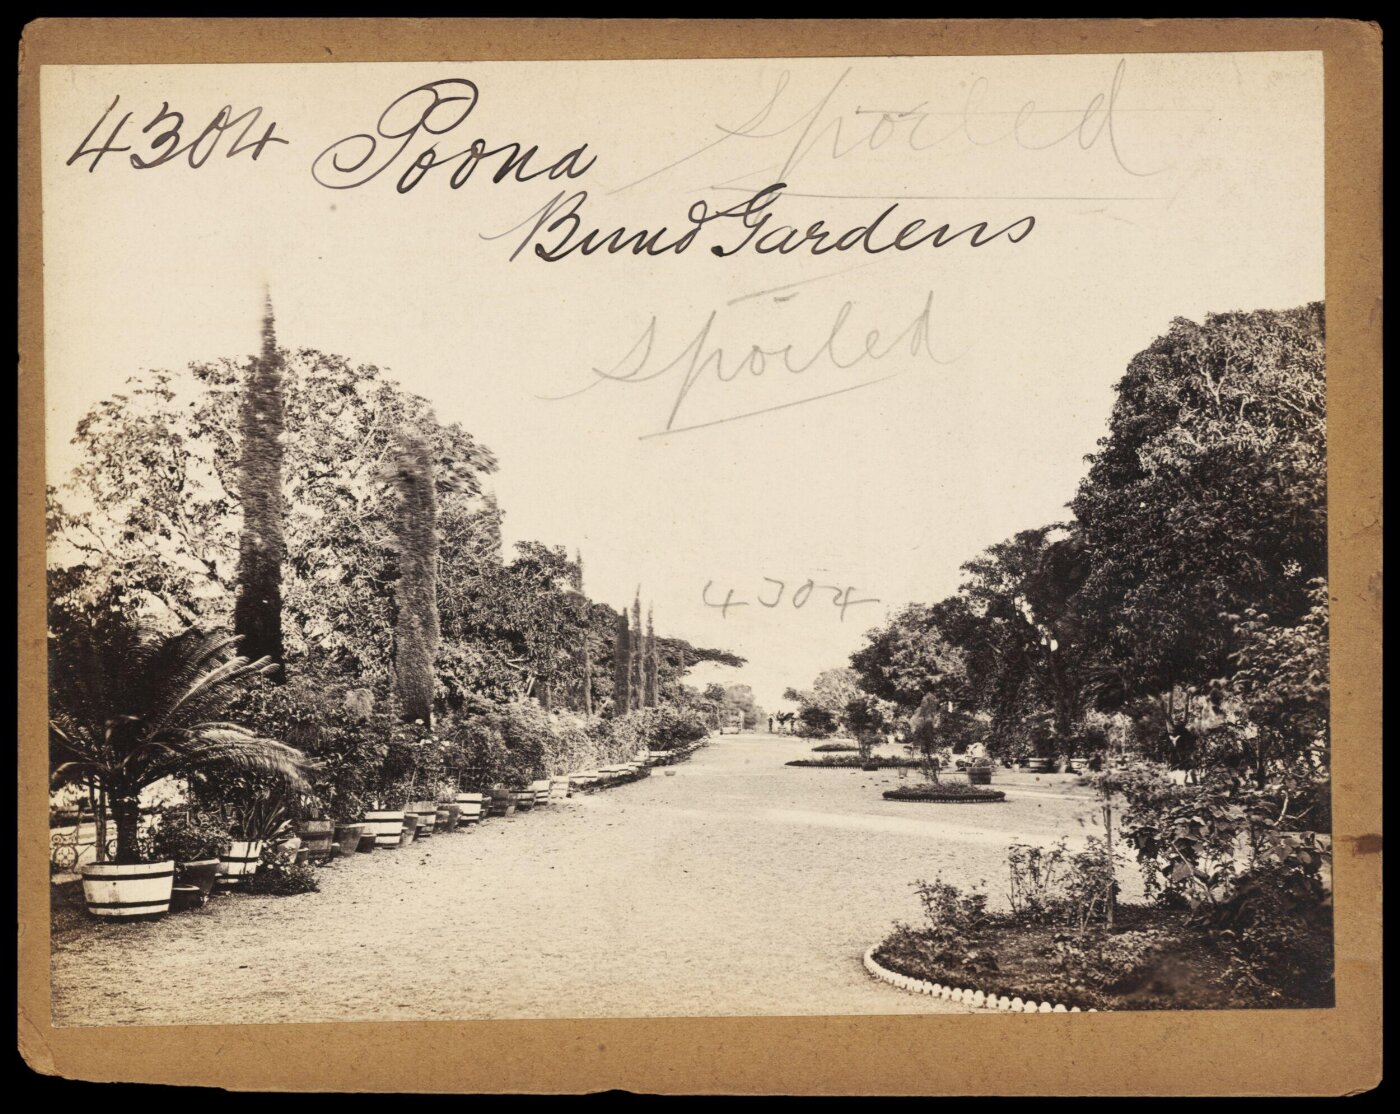 4304 Poona
spoiled
Bund Gardens
spoiled
4304